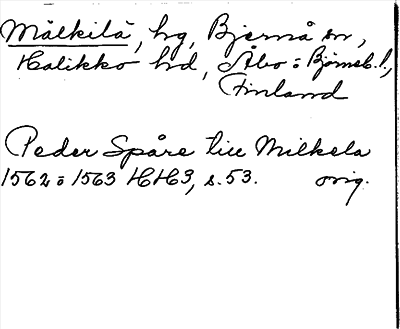 Mälkilä, hg, Bjernå sn,
Halikko hd, Åbo o Björneb. l.,
Finland
Peder Spåre till Milkela
1562 o 1563 HH3, s. 53. orig.